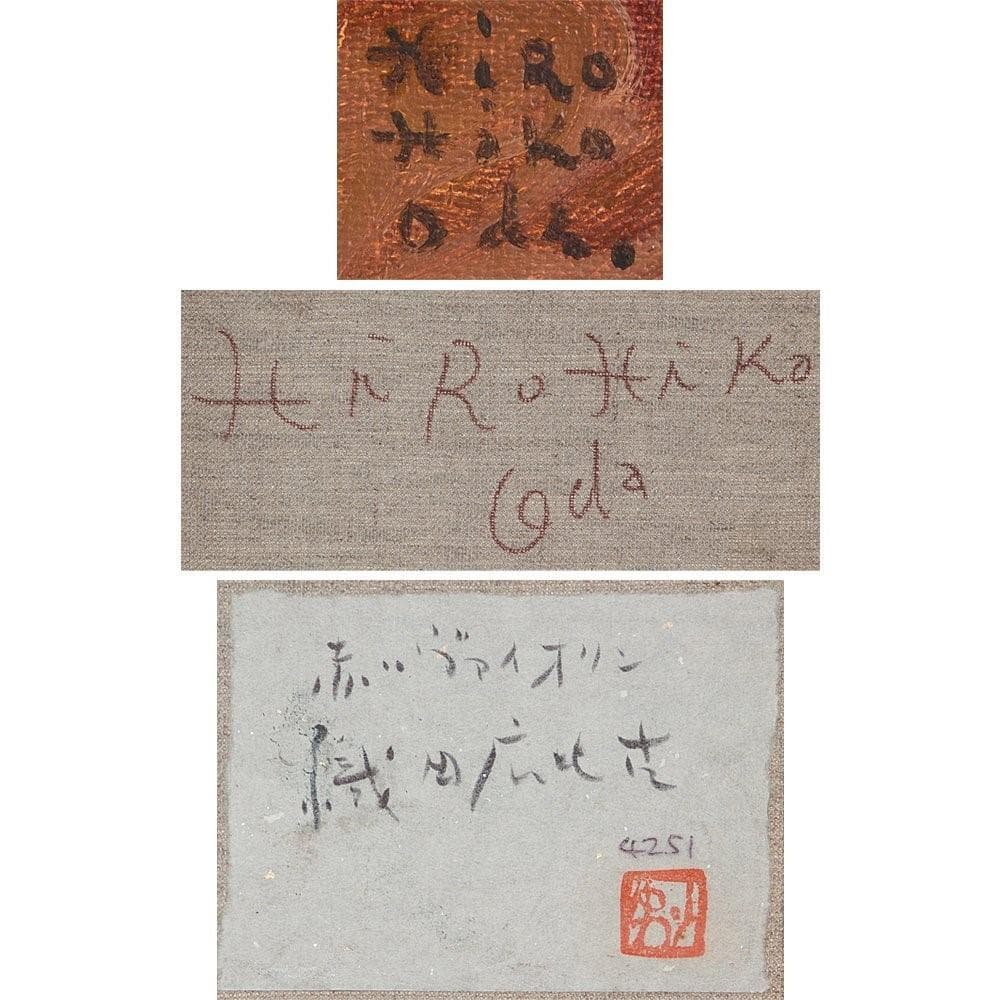 HiRo
HiKo
Oda.
HiRoHiKo
Oda
赤いヴァイオリン
織田広比古
4251